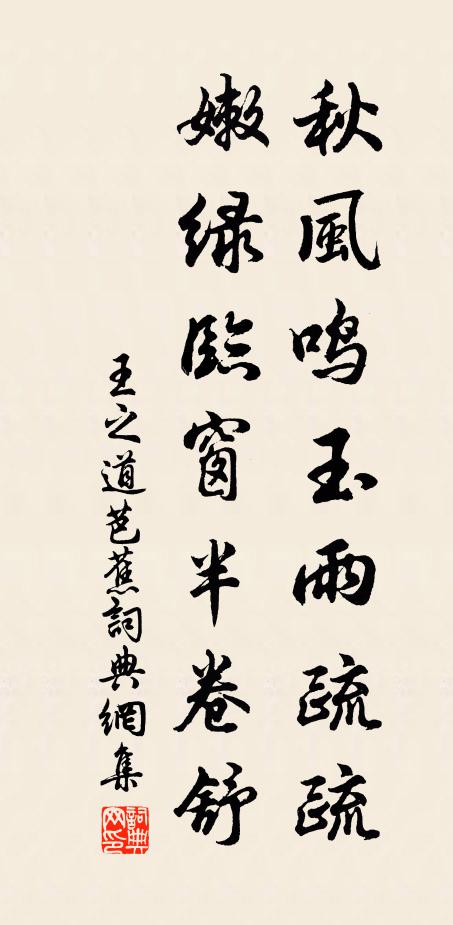 秋風鸣玉雨疏疏
嫩绿臨窗半卷舒
王之道芭蕉詞典網集
詞典網印